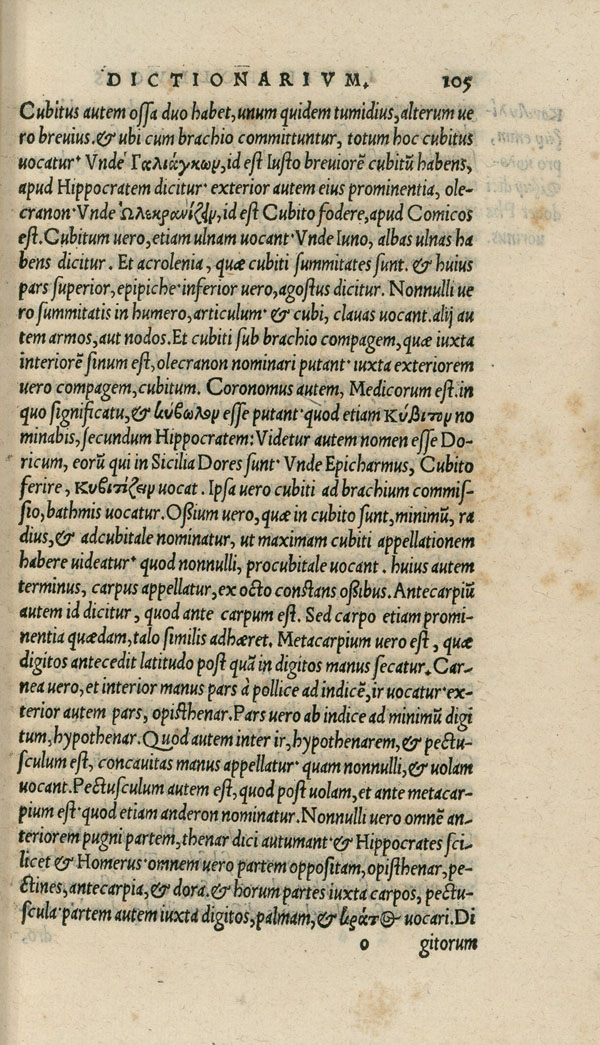 DICTIONARIVM. 105
Cubitus autem ossa duo habet, unum quidem tumidius, alterum ue
ro breuius. & ubi cum brachio committuntur, totum hoc cubitus
uocatur· Vnde Γαλιάγκων, id est Iusto breuiorē cubitū habens,
apud Hippocratem dicitur· exterior autem eius prominentia, ole-
cranon· Vnde Ὠλεκρανίζειν, id est Cubito fodere, apud Comicos
est. Cubitum uero, etiam ulnam uocant· Vnde Iuno, albas ulnas ha
bens dicitur. Et acrolenia, quæ cubiti summitates sunt. & huius
pars superior, epipiche· inferior uero, agostus dicitur. Nonnulli ue
ro summitatis in humero, articulum· & cubi, clauas uocant. alij au
tem armos, aut nodos. Et cubiti sub brachio compagem, quæ iuxta
interiorē sinum est, olecranon nominari putant· iuxta exteriorem
uero compagem, cubitum. Coronomus autem, Medicorum est. in
quo significatu, & κύβωλον esse putant· quod etiam Κύβιτον no
minabis, secundum Hippocratem: Videtur autem nomen esse Do-
ricum, eorū qui in Sicilia Dores sunt· Vnde Epicharmus, Cubito
ferire, κυβιτίζειν uocat. Ipsa uero cubiti ad brachium commis-
sio, bathmis uocatur. Ossium uero, quæ in cubito sunt, minimū, ra
dius, & adcubitale nominatur, ut maximam cubiti appellationem
habere uideatur· quod nonnulli, procubitale uocant. huius autem
terminus, carpus appellatur, ex octo constans ossibus. Antecarpiū
autem id dicitur, quod ante carpum est. Sed carpo etiam promi-
nentia quædam, talo similis adhæret. Metacarpium uero est, quæ
digitos antecedit latitudo post quā in digitos manus secatur. Car-
nea uero, et interior manus pars à pollice ad indicē, ir uocatur· ex-
terior autem pars, opisthenar. Pars uero ab indice ad minimū digi
tum, hypothenar. Quod autem inter ir, hypothenarem, & pectu-
sculum est, concauitas manus appellatur· quam nonnulli, & uolam
uocant. Pectusculum autem est, quod post uolam, et ante metacar-
pium est· quod etiam anderon nominatur. Nonnulli uero omnē an-
teriorem pugni partem, thenar dici autumant· & Hippocrates sci-
licet & Homerus· omnem uero partem oppositam, opisthenar, pe-
ctines, antecarpia, & dora. & horum partes iuxta carpos, pectu-
scula· partem autem iuxta digitos, palmam, & κράτος uocari. Di
o gitorum